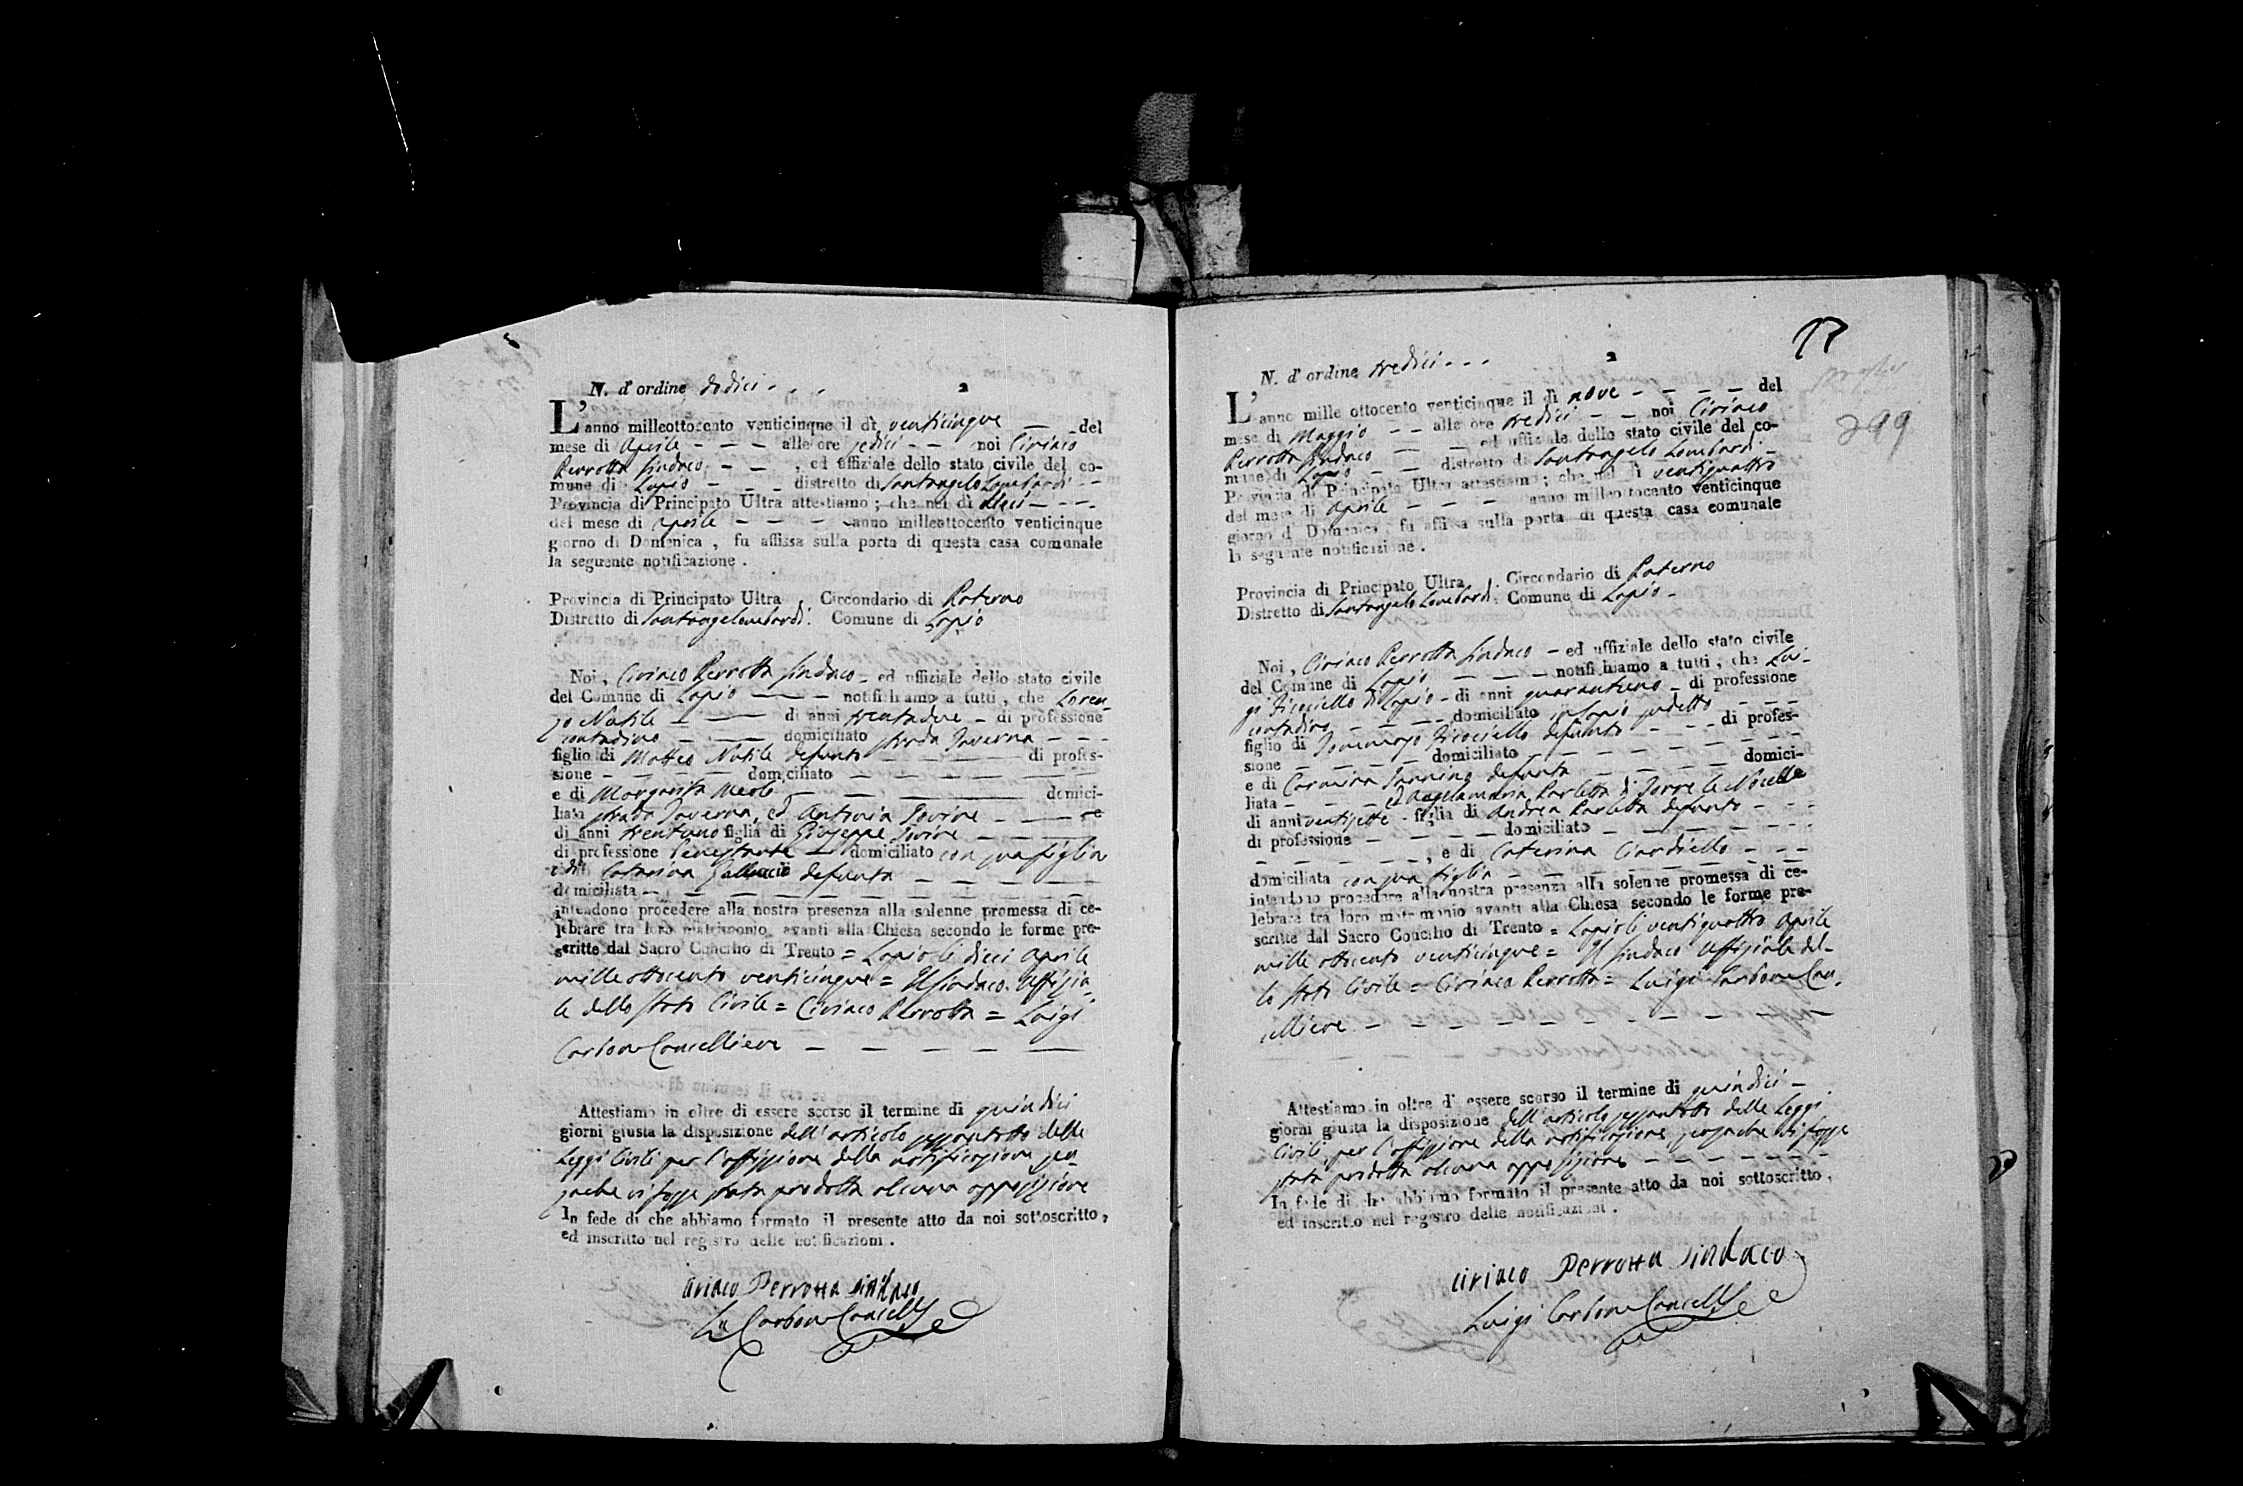 N. d'ordine dodici
2
L'anno milleottocento venticinque il dì venticinque del
mese di Aprile alle ore sedici noi Ciriaco
Perrotta Sindaco, ed uffiziale dello stato civile del co-
mune di Lapio distretto di Santangelo Lombardi
Provincia di Principato Ultra attestiamo; che nel dì dieci
del mese di Aprile anno milleottocento venticinque
giorno di Domenica, fu affissa sulla porta di questa casa comunale
la seguente notificazione.
Provincia di Principato Ultra. Circondario di Paterno
Distretto di Santangelo Lombardi. Comune di Lapio
Noi, Ciriaco Perrotta Sindaco - ed uffiziale dello stato civile
del Comune di Lapio notifichiamo a tutti, che Loren-
zo Natile di anni trentadue - di professione
contadino domiciliato strada Taverna
figlio di Matteo Natile defunto di profes-
sione domiciliato
e di Margarita domici-
liata strada Taverna, ed Antonia Iovine
di anni trentuno figlia di Giuseppe Iovine
di professione domiciliato con sua figlia
e di Catarina defunta
domiciliata
intendono procedere alla nostra presenza alla solenne promessa di ce-
lebrare tra loro matrimonio avanti alla Chiesa secondo le forme pre-
scritte dal Sacro Concilio di Trento = Lapio li dieci Aprile
mille ottocento venticinque = Il Sindaco Uffizia-
le dello Stato Civile = Ciriaco Perrotta = Luigi
Carbone Cancelliere
Attestiamo in oltre di essere scorso il termine di quindici
giorni giusta la disposizione dell'articolo sessantotto delle
Leggi Civili per l'affissione della notificazione sen-
zache vi fosse stata prodotta alcuna opposizione
In fede di che abbiamo formato il presente atto da noi sottoscritto,
ed inscritto nel registro delle notificazioni.
Ciriaco Perrotta Sindaco
Lu Carbone Cancell
N. d'ordine tredici
2
299
L'anno mille ottocento venticinque il dì nove del
mese di Maggio alle ore tredici noi Ciriaco
Perrotta Sindaco ed uffiziale dello stato civile del co-
mune di Lapio distretto di Santangelo Lombardi
Provincia di Principato Ultra attestiamo; che nel dì ventiquattro
del mese di Aprile anno milleottocento venticinque
giorno di Domenica, fu affissa sulla porta di questa casa comunale
la seguente notificazione.
Provincia di Principato Ultra. Circondario di Paterno
Distretto di Santangelo Lombardi. Comune di Lapio
Noi, Ciriaco Perrotta Sindaco - ed uffiziale dello stato civile
del Comune di Lapio notifichiamo a tutti, che Lui-
gi Ficociello di Lapio - di anni quarantuno - di professione
contadino domiciliato in Lapio sudetto
figlio di Tommaso Ficociello defunto di profes-
sione domiciliato
e di Carmina Iannino defunta domici-
liata ed Angelamaria Barletta di Torre le Nocelle
di anni ventisette - figlia di Andrea Barletta defunto
di professione domiciliato
, e di Caterina Ciardiello
domiciliata con sua figlia
intendono procedere alla nostra presenza alla solenne promessa di ce-
lebrare tra loro matrimonio avanti alla Chiesa secondo le forme pre-
scritte dal Sacro Concilio di Trento = Lapio li ventiquattro Aprile
mille ottocento venticinque = Il Sindaco Uffiziale del-
lo Stato Civile = Ciriaco Perrotta = Luigi Carbone Can-
celliere
Attestiamo in oltre di essere scorso il termine di quindici
giorni giusta la disposizione dell'articolo sessantotto delle Leggi
Civili per l'affissione della notificazione senzache vi fosse
stata prodotta alcuna opposizione
In fede di che abbiamo formato il presente atto da noi sottoscritto,
ed inscritto nel registro delle notificazioni.
Ciriaco Perrotta Sindaco
Luigi Carbone Cancell